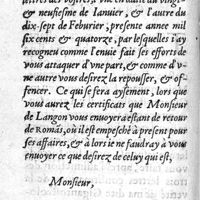 & neufiesme de Ianuier, & l'autre du
dix-sept de Feburier, presente annee mil
six cents & quatorze, par lesquelles i'ay
recogneu comme l'enuie fait ses efforts de
vous attaquer d'vne part, & comme d'v-
ne autre vous desirez la repousser, & of-
fencer. Ce qui se fera aysement, lors que
vous aurez les certificats que Monsieur
de Langon vous enuoyera estant de retour
de Romãs, où il est empesché à present pour
ses affaires, & à lors ie ne faudray à vous
enuoyer ce que desirez de celuy qui est,
Monsieur,